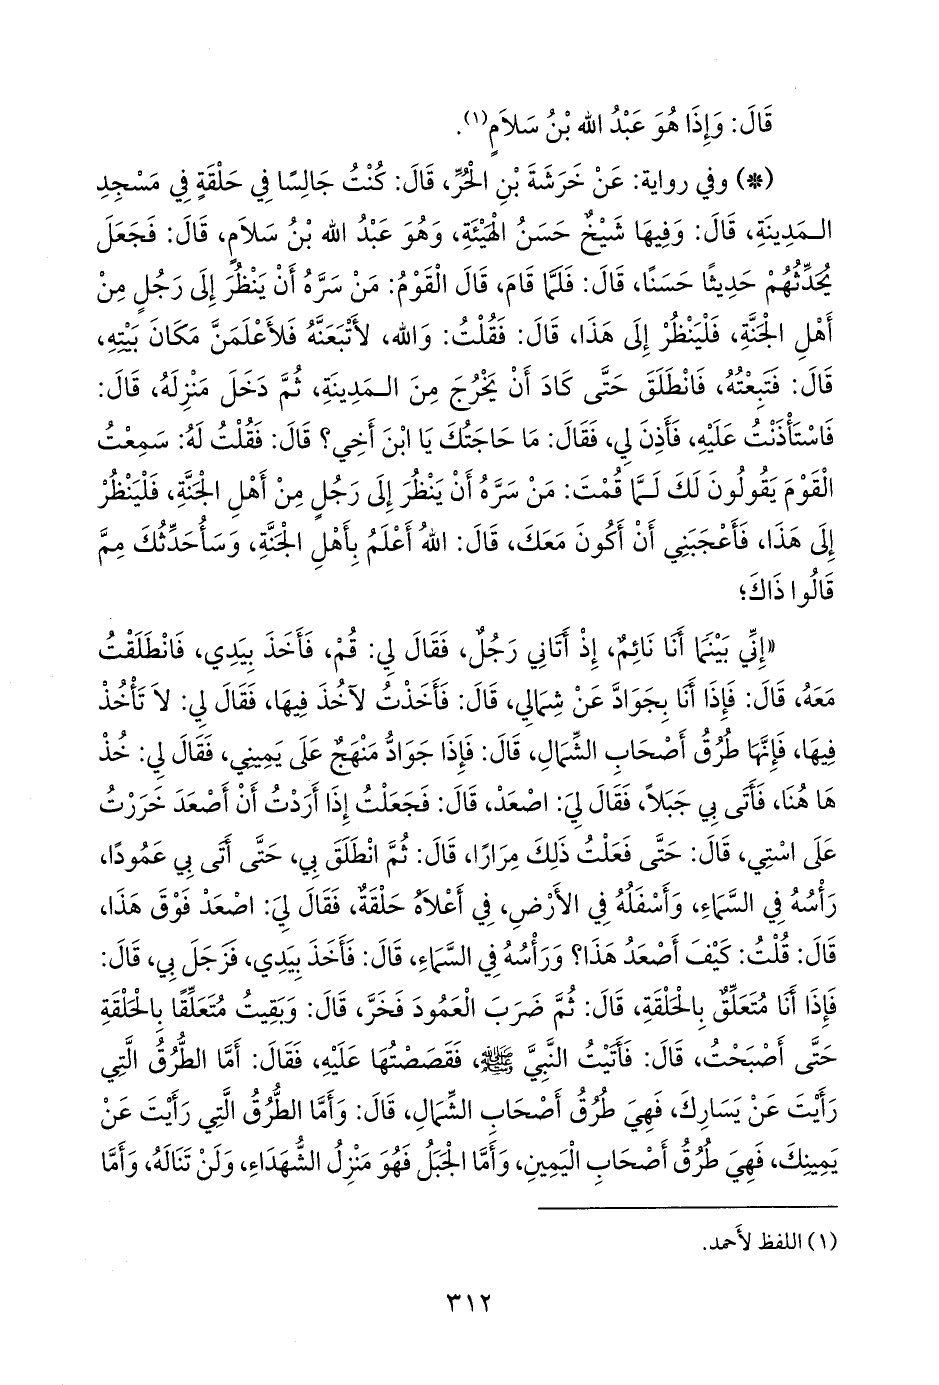 قَالَ: وَإِذَا هُوَ عَبْدُ الله بْنُ سَلاَمٍ(١).
(*) وفي رواية: عَنْ خَرَشَةَ بْنِ الْحُرِّ، قَالَ: كُنْتُ جَالِسًا فِي حَلْقَةٍ فِي مَسْجِدِ
الـمَدِينَةِ، قَالَ: وَفِيهَا شَيْخٌ حَسَنُ الْهَيْئَةِ، وَهُوَ عَبْدُ الله بْنُ سَلاَمٍ، قَالَ: فَجَعَلَ
يُحَدِّثُهُمْ حَدِيثًا حَسَنًا، قَالَ: فَلَمَّا قَامَ، قَالَ الْقَوْمُ: مَنْ سَرَّهُ أَنْ يَنْظُرَ إِلَى رَجُلٍ مِنْ
أَهْلِ الجَنَّةِ، فَلْيَنْظُرْ إِلَى هَذَا، قَالَ: فَقُلْتُ: وَالله، لأَتْبَعَنَّهُ فَلأَعْلَمَنَّ مَكَانَ بَيْتِهِ،
قَالَ: فَتَبِعْتُهُ، فَانْطَلَقَ حَتَّى كَادَ أَنْ يَخْرُجَ مِنَ الـمَدِينَةِ، ثُمَّ دَخَلَ مَنْزِلَهُ، قَالَ:
فَاسْتَأْذَنْتُ عَلَيْهِ، فَأَذِنَ لِي، فَقَالَ: مَا حَاجَتُكَ يَا ابْنَ أَخِي؟ قَالَ: فَقُلْتُ لَهُ: سَمِعْتُ
الْقَوْمَ يَقُولُونَ لَكَ لَـمَّا قُمْتَ: مَنْ سَرَّهُ أَنْ يَنْظُرَ إِلَى رَجُلٍ مِنْ أَهْلِ الجَنَّةِ، فَلْيَنْظُرْ
إِلَى هَذَا، فَأَعْجَبَنِي أَنْ أَكُونَ مَعَكَ، قَالَ: اللهُ أَعْلَمُ بِأَهْلِ الجَنَّةِ، وَسَأُحَدِّثُكَ مِمَّ
قَالُوا ذَاكَ؛
«إِنِّي بَيْنَمَا أَنَا نَائِمٌ، إِذْ أَتَانِي رَجُلٌ، فَقَالَ لِي: قُمْ، فَأَخَذَ بِيَدِي، فَانْطَلَقْتُ
مَعَهُ، قَالَ: فَإِذَا أَنَا بِجَوَادَّ عَنْ شِمَالِي، قَالَ: فَأَخَذْتُ لآخُذَ فِيهَا، فَقَالَ لِي: لاَ تَأْخُذْ
فِيهَا، فَإِنَّهَا طُرُقُ أَصْحَابِ الشِّمَالِ، قَالَ: فَإِذَا جَوَادُّ مَنْهَجٌ عَلَى يَمِينِي، فَقَالَ لِي: خُذْ
هَا هُنَا، فَأَتَى بِي جَبَلاً، فَقَالَ لِيَ: اصْعَدْ، قَالَ: فَجَعَلْتُ إِذَا أَرَدْتُ أَنْ أَصْعَدَ خَرَرْتُ
عَلَى اسْتِي، قَالَ: حَتَّى فَعَلْتُ ذَلِكَ مِرَارًا، قَالَ: ثُمَّ انْطَلَقَ بِي، حَتَّى أَتَى بِي عَمُودًا،
رَأْسُهُ فِي السَّمَاءِ، وَأَسْفَلُهُ فِي الأَرْضِ، فِي أَعْلاَهُ حَلْقَةٌ، فَقَالَ لِيَ: اصْعَدْ فَوْقَ هَذَا،
قَالَ: قُلْتُ: كَيْفَ أَصْعَدُ هَذَا؟ وَرَأْسُهُ فِي السَّمَاءِ، قَالَ: فَأَخَذَ بِيَدِي، فَزَجَلَ بِي، قَالَ:
فَإِذَا أَنَا مُتَعَلِّقٌ بِالْحَلْقَةِ، قَالَ: ثُمَّ ضَرَبَ الْعَمُودَ فَخَرَّ، قَالَ: وَبَقِيتُ مُتَعَلِّقًا بِالْحَلْقَةِ
حَتَّى أَصْبَحْتُ، قَالَ: فَأَتَيْتُ النَّبِيَّ ﷺ، فَقَصَصْتُهَا عَلَيْهِ، فَقَالَ: أَمَّا الطُّرُقُ الَّتِي
رَأَيْتَ عَنْ يَسَارِكَ، فَهِيَ طُرُقُ أَصْحَابِ الشِّمَالِ، قَالَ: وَأَمَّا الطُّرُقُ الَّتِي رَأَيْتَ عَنْ
يَمِينِكَ، فَهِيَ طُرُقُ أَصْحَابِ الْيَمِينِ، وَأَمَّا الجَبَلُ فَهُوَ مَنْزِلُ الشُّهَدَاءِ، وَلَنْ تَنَالَهُ، وَأَمَّا
(١) اللفظ لأحمد.
٣١٢